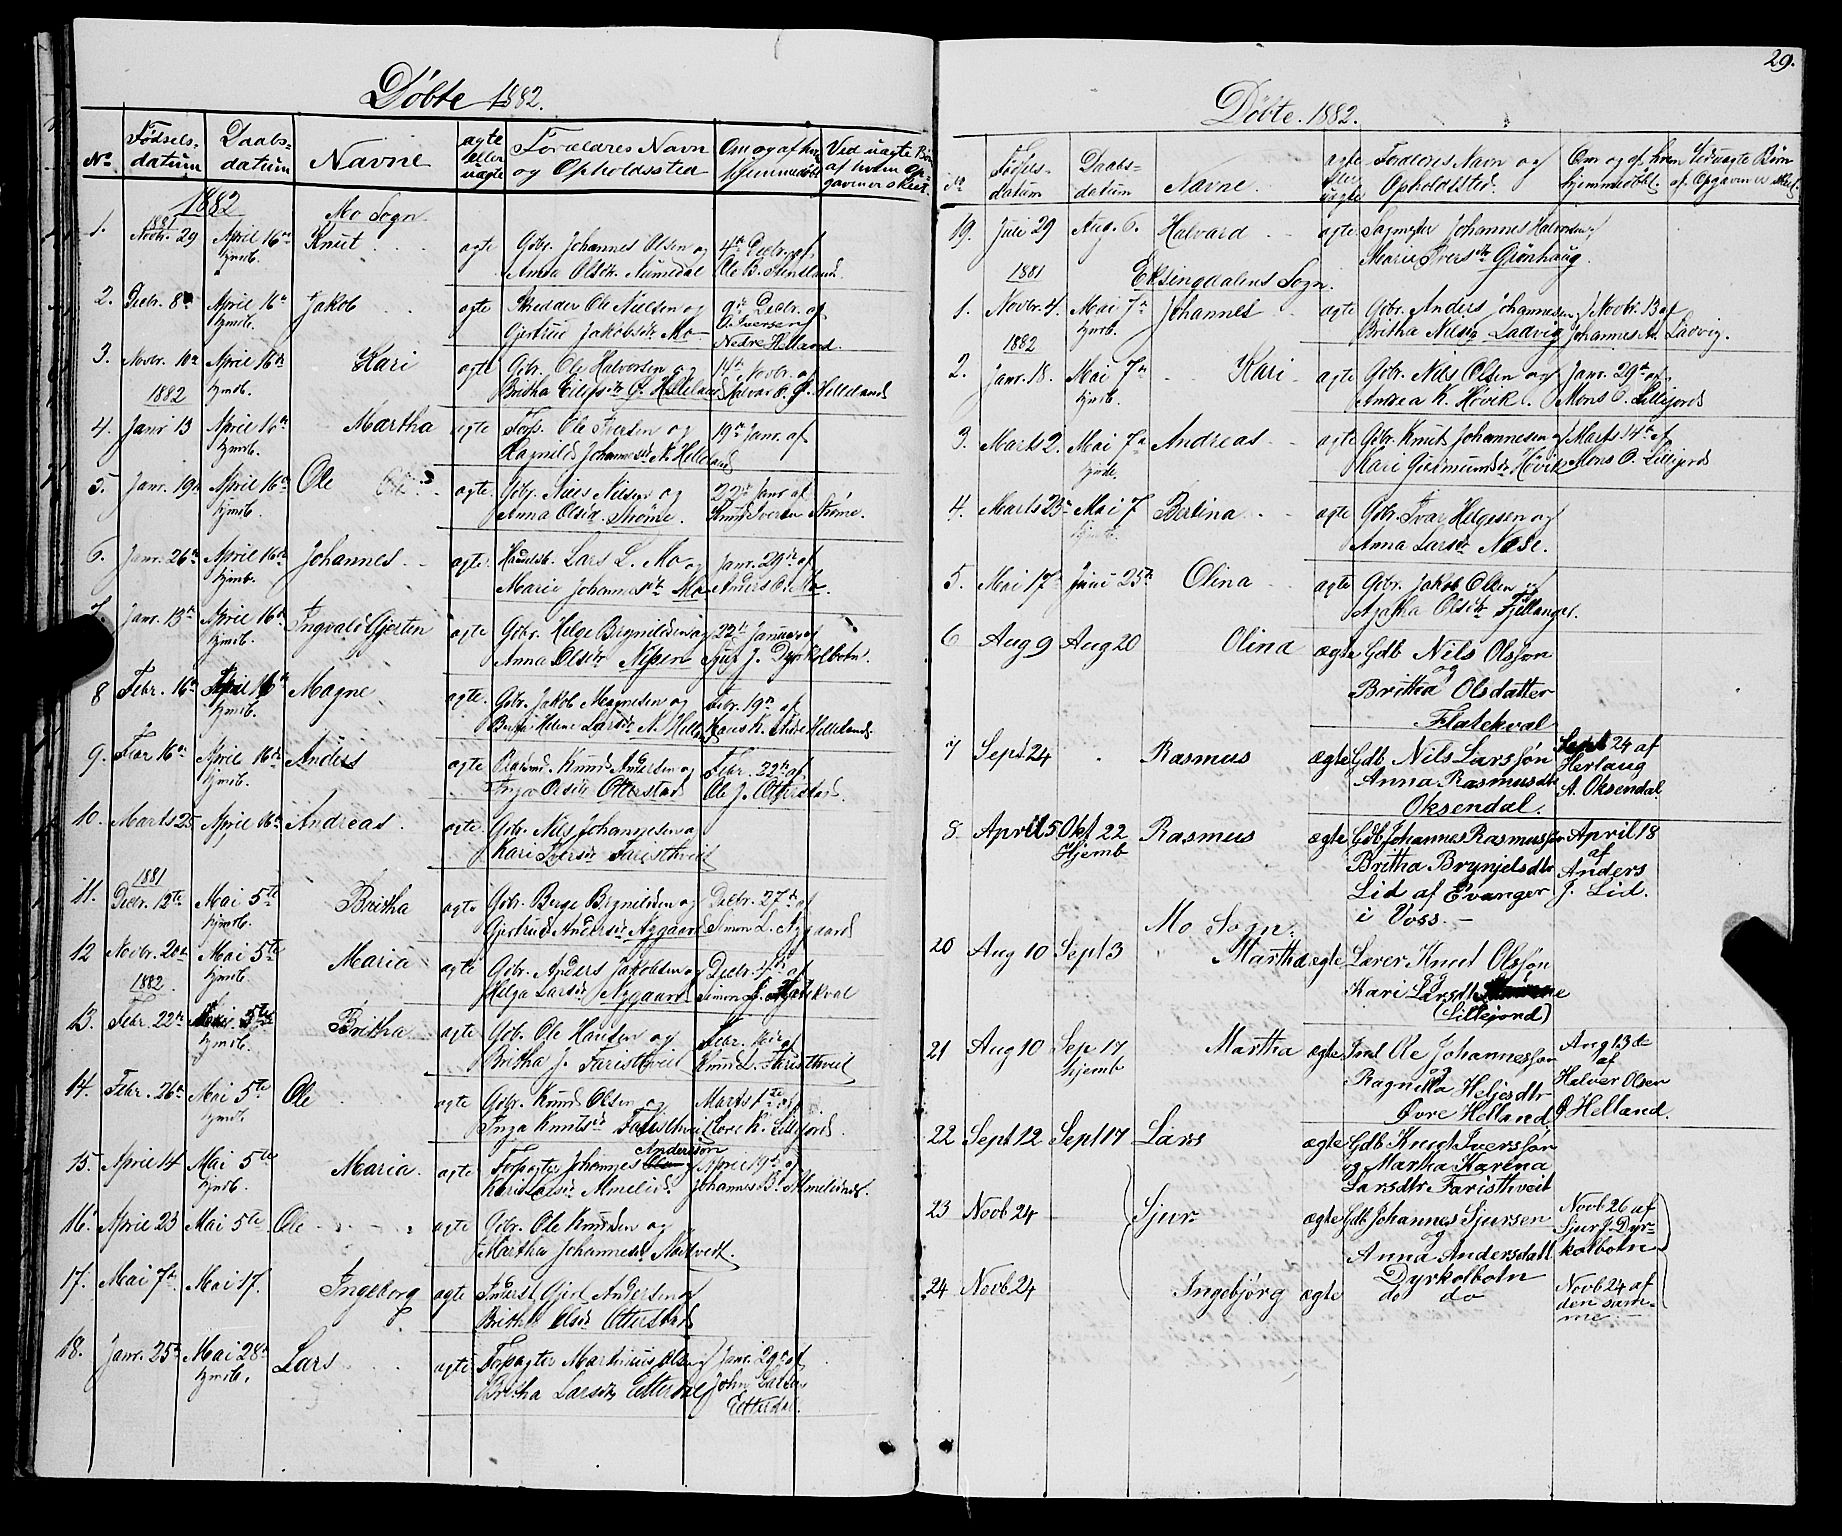 Døbte 1882.
No. Fødsels-datum Daabs-datum Navne ægte eller uægte Forældres Navn og Opholdssted Om og af hvem hjemmedøbt Ved uægte Børn af hvem Opgaven er skeet
1882 Mo Sogn.
1. 1881 Novbr. 29 April 16de hjmdb. Knut ægte Gbr. Johannes Olsen og 4de Decbr. af
Anna Olsdtr.
2. Decbr. 8de April 16de hjmdb. Jakob ægte Ole Nielsen og 9de Decbr. af
Gjertrud Jakobsdtr. Mo O. Iversen
Nedre Helland.
3. Novbr. April 16de hjmdb. Kari ægte Gbr. Ole Halvorsen og 14de Novbr. af
Britha Ø. Helleland Halvor O. Ø. Helleland
1882
4. Janr 13 April 16de hjmdb. Martha ægte Ole Iversen og 19de Janr. af
Ragnild Johannesdr. N. Helleland
5. Janr. 19de April 16de hjmdb. Ole ægte Gbr. Niels Nilsen og 22de Janr af
Anna Olsdr. Strøme. Knud Iversen Strøme.
6. Janr. 26de April 16de hjmdb. Johannes ægte Lars L. Mo og Janr. 29de af
Marie Johannesdtr. Mo Anders O. Mo
7. Janr. 13de April 16de hjmdb. Ingvald Gjerten ægte Gbr. Helge Brynildsen og 22de Januar af
Anna Olsdtr. Nesen Sjur J. Dyrkolbotn.
8 Febr. 16de April 16de hjmdb. Magne ægte Gbr. Jakob Magnesen og Febr. 19de af
Bertha Helene Larsdr. N. Helland Helleland
9. Febr 16de April 16de hjmdb. Anders ægte Knud Andersen og Febr. 22de af
Inga Olsdr. Otterstad Ole J. Otterstad.
10. Marts 25 April 16de Andreas. ægte Gbr. Nils Johannesen og
Kari Iversdr. Faristhveit
1881
11. Decbr. 12te Mai 5te hjmdb. Britha ægte Gbr. Berge Brynildsen og Decbr. 27de af
Gjertrud Andersdr. Nygaard Simon L. Nygaard
12 Novbr. 20de Mai 5te hjmdb. Maria ægte Gbr. Anders Jakobsen og Decbr. 4de af
Helga Larsdr. Nygaard Simon
1882.
13. Febr. 22de Mai 5te hjmdb. Britha ægte Gbr. Ole Hansen og Febr. af
Britha J. Faristhveit Knud L. Faristhveit
14. Febr. 26de Mai 5te hjmdb. Ole ægte Gbr. Knud Olsen og Marts 1ste af
Inga Knutsdr. Faristhveit K. Lillefjord.
15. April 14 Mai 5te hjmdb. Maria. ægte Forpagter Johannes Olsen Anderssøn og April 19de af
Kari Larsdr. Almelid. Johannes B. Almelid.
16. April 23 Mai 5te Ole ægte Gbr. Ole Knudsen og
Martha Johannesdr.
17. Mai 7de Mai 17. Ingeborg ægte Inderst Andersen og
Britha Olsdr. Otterstad
18. Janr. 25de Mai 28de hjmdb. Lars ægte Forpagter Martinus Olsen og Janr. 29de af
Britha Larsdtr. John

29.
Døbte. 1882.
No Fødsels-datum Daabs-datum Navne. ægte eller uægte Forældres Navn og Opholdssted. Om og af hvem hjemmedøbt. Ved uægte Børn af Opgaven er skeet.
19. Juli 29 Aug. 6. Halvard ægte Johannes Halvorsen og
Marie Iversdtr Grønhaug.
1881 Eksingdalens Sogn.
1. Novbr. 4. Mai 7de hjmdb. Johannes ægte Gbr. Anders Johannesen og Novbr. 13 af
Britha Nilsdr. Ladvig Johannes A. Ladvig.
1882
2. Janr. 18. Mai 7de hjmdb. Kari ægte Gbr. Nils Olsen og Janr. 29de af
Andrea K. Høvik. Mons O. Lillefjord
3. Marts 2. Mai 7de hjmdb. Andreas ægte Gbr. Knut Johannesen og Marts 14de af
Kari Høvik Mons O. Lillefjord
4. Marts 23de Mai 7 hjmdb. Bertina ægte Gbr. Ivar Helgesen og
Anna Larsdr. Nese.
5. Mai 17de Juni 25de Olina ægte Gbr. Jakob Olsen og
Agatha Olsdtr. Fjellanger.
6 Aug 9 Aug 20 Olina ægte Gdb Nils Olssøn
og
Britha Olsdatter
Flatekval
7 Sept 24 Rasmus ægte Gdb Nils Larssøn Sept 24 af
Anna Rasmusdtr Herlaug
Oksendal. A. Oksendal
8. April 5 Okt 22 Hjemb Rasmus ægte Gdb Johannes Rasmussøn April 18
Britha Brynjelsdtr af Anders
Lid af Evanger J. Lid.
i Voss.
Mo Sogn.
20 Aug 10 Sept 3 Martha ægte Lærer Knut Olssøn
og
Kari Larsdtr
(Lillejord)
21 Aug 10 Sep 17 hjemb Martha ægte Ole Johannessøn Aug 13de
og af
Ragnilla Heljesdtr Halvor Olsen
Øvre Helland Ø Helland.
22 Sept 12 Sept 17 Lars ægte Gdb Knut Iverssøn
og Martha Karina
Larsdtr Faristhveit
23 Novb 24 Sjur ægte Gdb Johannes Sjursen Novb 26 af
og Sjur J. Dyr-
Anna Andersdatt kolbotn
Dyrkolbotn
24 Novb 24 Ingebjørg ægte do do Novb 24 af
den sam-
me